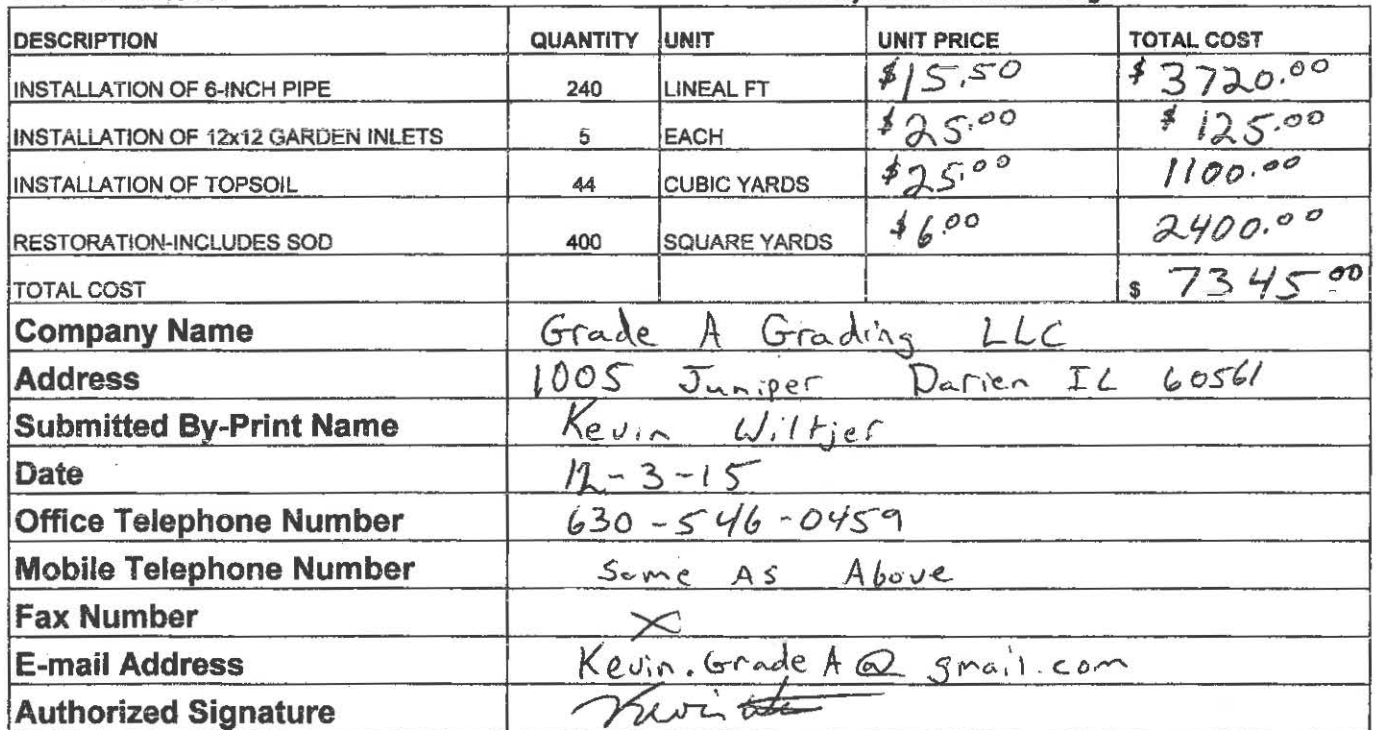 DESCRIPTION QUANTITY UNIT UNIT PRICE TOTAL COST
INSTALLATION OF 6-INCH PIPE 240 LINEAL FT $15.50 $3720.00
INSTALLATION OF 12x12 GARDEN INLETS 5 EACH $25.00 $125.00
INSTALLATION OF TOPSOIL 44 CUBIC YARDS $25.00 1100.00
RESTORATION-INCLUDES SOD 400 SQUARE YARDS $6.00 2400.00
TOTAL COST $ 7345.00
Company Name Grade A Grading LLC
Address 1005 Juniper Darien IL 60561
Submitted By-Print Name Kevin Wiltjer
Date 12-3-15
Office Telephone Number 630-546-0459
Mobile Telephone Number Same As Above
Fax Number X
E-mail Address Kevin.GradeA@gmail.com
Authorized Signature Kevin